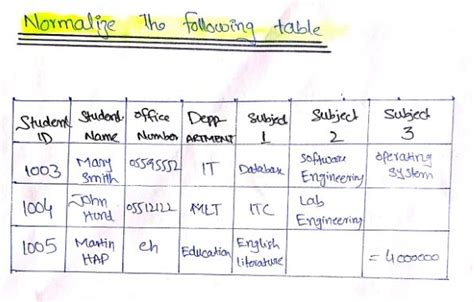 Normalize The following table
Student ID | Student Name | office Number | Depp- ARTMENT | Subject 1 | Subject 2 | Subject 3
1003 | Mary Smith | 05595552 | IT | Database | Software Engineering | operating System
1004 | John Hurd | 05512122 | MLT | ITC | Lab Engineering
1005 | Martin HAP | eh | Education | English literature | = 4000000